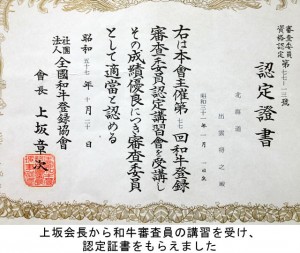 認定證書
審査委員
資格認定 第七七―一三號
北海道
昭和三十一年一月一日生
右は本會主催第七七回和牛登録
審査委員認定講習會を受講し
その成績優良につき審査委員
として適當と認める
昭和五十七年十月二十日
社團
法人 全國和牛登録協會
會長 上坂章次
上坂会長から和牛審査員の講習を受け、
認定証書をもらえました